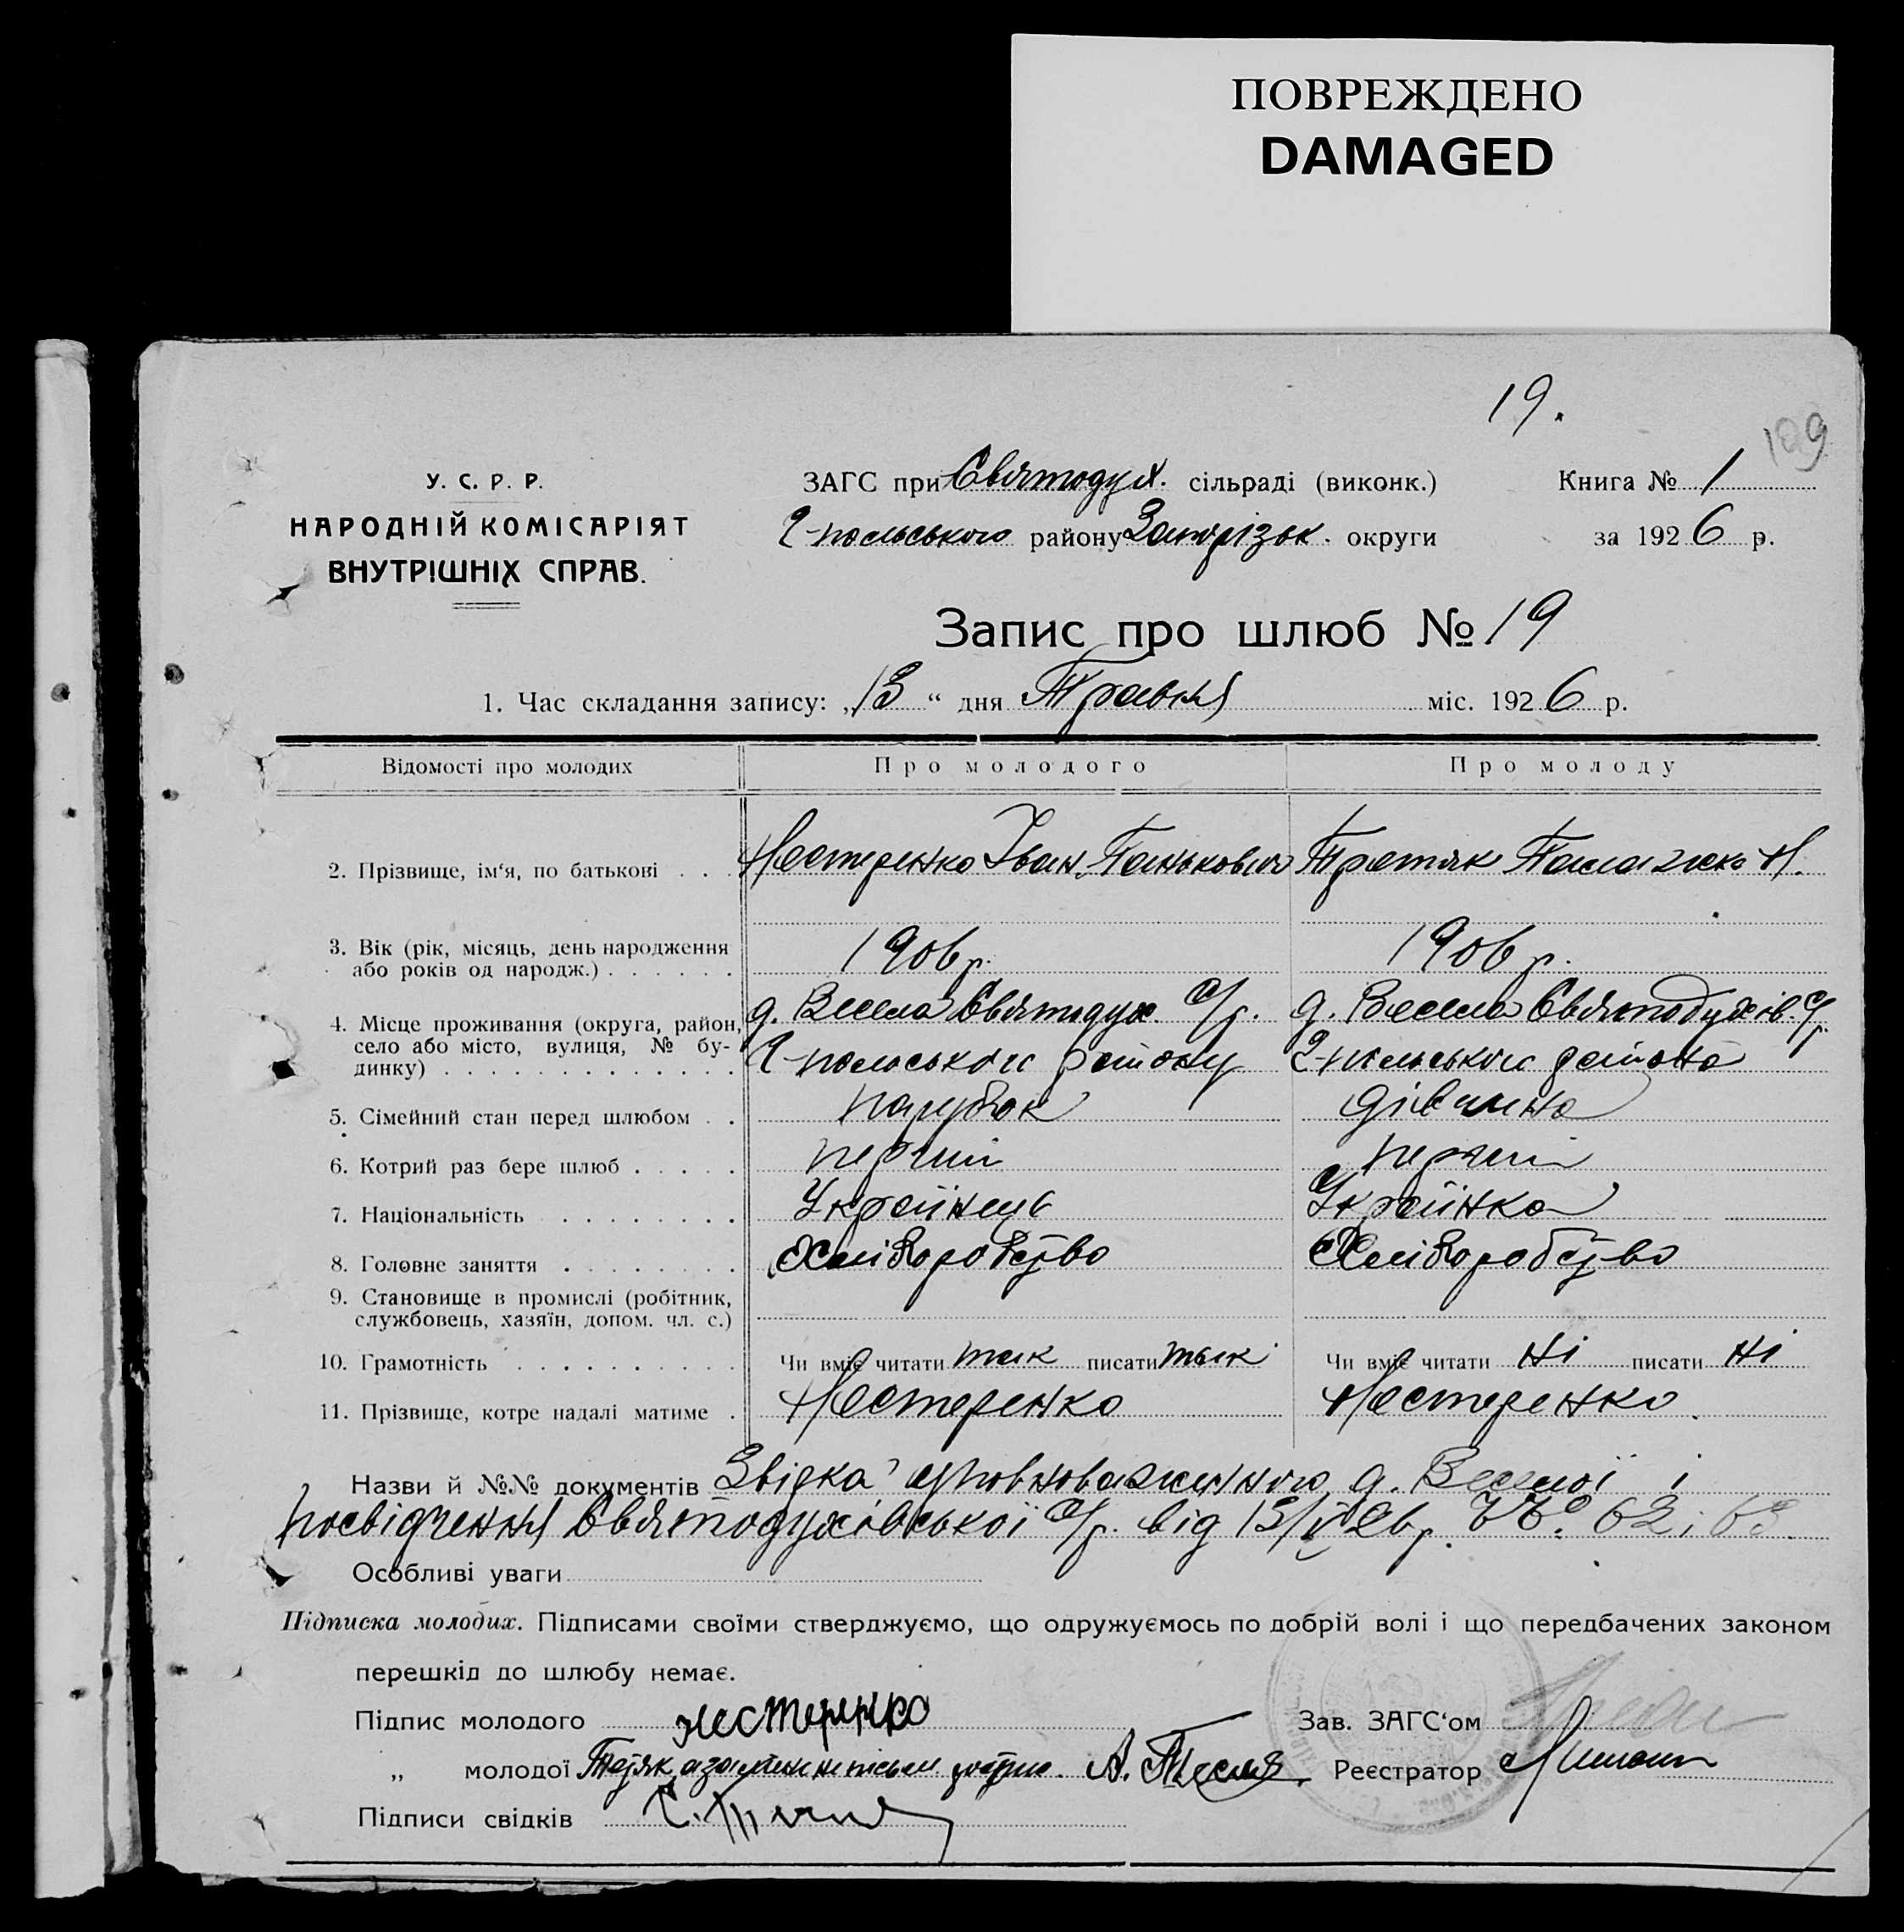 ПОВРЕЖДЕНО
DAMAGED
19.
109
У. С. Р. Р.
НАРОДНІЙ КОМІСАРІЯТ
ВНУТРІШНІХ СПРАВ.
ЗАГС при Святодух. сільраді (виконк.) Книга № 1
Г-польського району Запорізьк. округи за 1926 р.
Запис про шлюб № 19
1. Час складання запису: „13“ дня Травня міс. 1926 р.
Відомості про молодих Про молодого Про молоду
2. Прізвище, ім‘я, по батькові . . Нестеренко Іван Панькович Третяк Палажка Н.
3. Вік (рік, місяць, день народження
або років од народж.) . . . . . . 1906 р. 1906 р.
4. Місце проживання (округа, район, д. Весела Святодух. С/р. д. Весела Святодухів. С/р
село або місто, вулиця, № бу- Г-польського району Г-польського району
динку) . . . . . . . . . . . . .
5. Сімейний стан перед шлюбом . . парубок дівчина
6. Котрий раз бере шлюб . . . . . перший перший
7. Національність . . . . . . . . Українець Українка
8. Головне заняття . . . . . . . . Хліборобство Хліборобство
9. Становище в промислі (робітник,
службовець, хазяїн, допом. чл. с.)
10. Грамотність . . . . . . . . . . Чи вміє читати так писати так Чи вміє читати ні писати ні
11. Прізвище, котре надалі матиме . Нестеренко Нестеренко.
Назви й №№ документів Звідка уповноваженного д. Веселої і
посвідчення Святодухівської С/р. від 13/V 26 р. №№ 62 і 63.
Особливі уваги
Підписка молодих. Підписами своїми стверджуємо, що одружуємось по добрій волі і що передбачених законом
перешкід до шлюбу немає.
Підпис молодого нестеренко Зав. ЗАГС‘ом
„ молодої А. Тесля Реєстратор
Підписи свідків